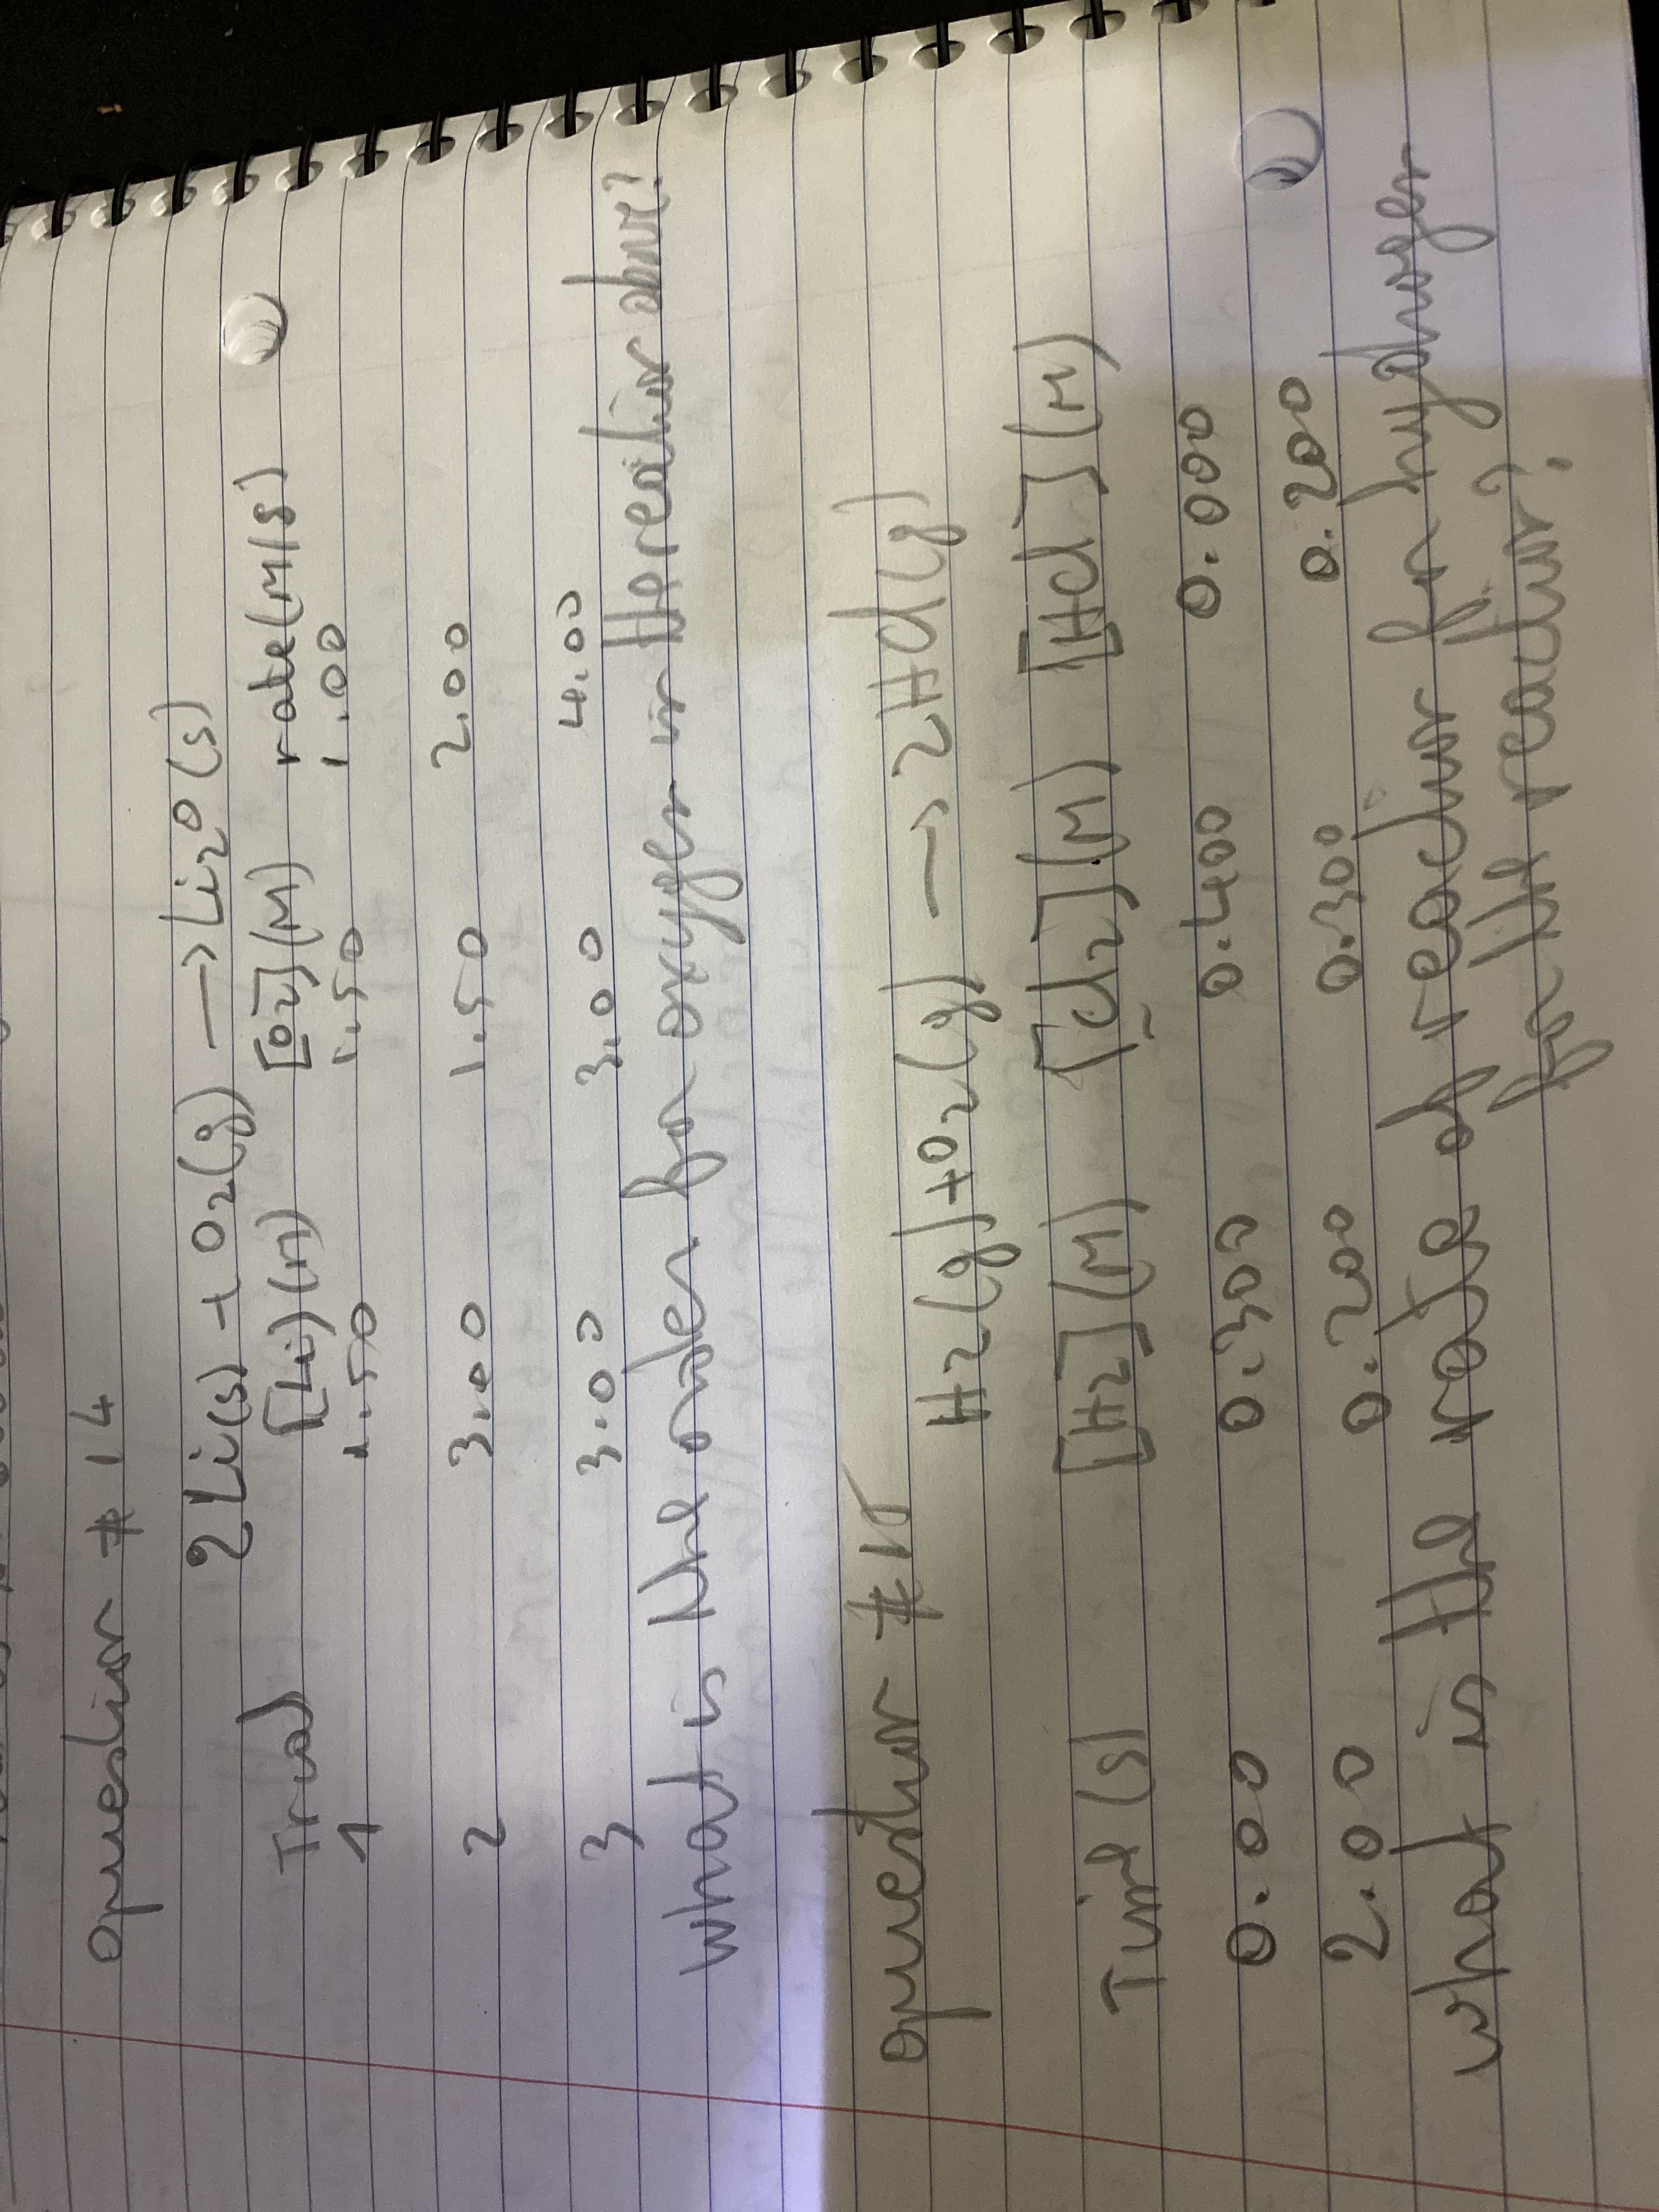 Question # 14
2Li(s) + O2(g) → Li2O(s)
Trial [Li](M) [O2](M) rate(M/s)
1 1.50 1.50 1.00
2 3.00 1.50 2.00
3 3.00 3.00 4.00
What is the order for oxygen in the reaction above?
Question #15
H2(g)+O2(g) → 2HCl(g)
Time (s) [H2](M) [Cl2](M) [HCl](M)
0.00 0.300 0.400 0.000
2.00 0.200 0.300 0.200
what is the rate of reaction for hydrogen
for the reaction?